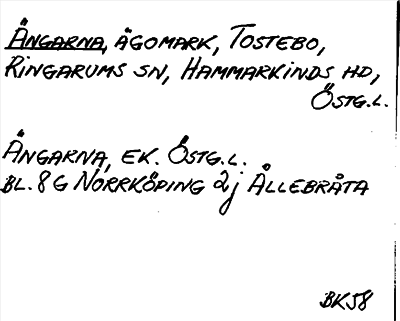 ÄNGARNA, ÄGOMARK, TOSTEBO,
RINGARUMS SN, HAMMARKINDS HD,
ÖSTG.L.
ÄNGARNA, EK. ÖSTG.L.
BL. 8G NORRKÖPING 2j ÅLLEBRÅTA
BK58